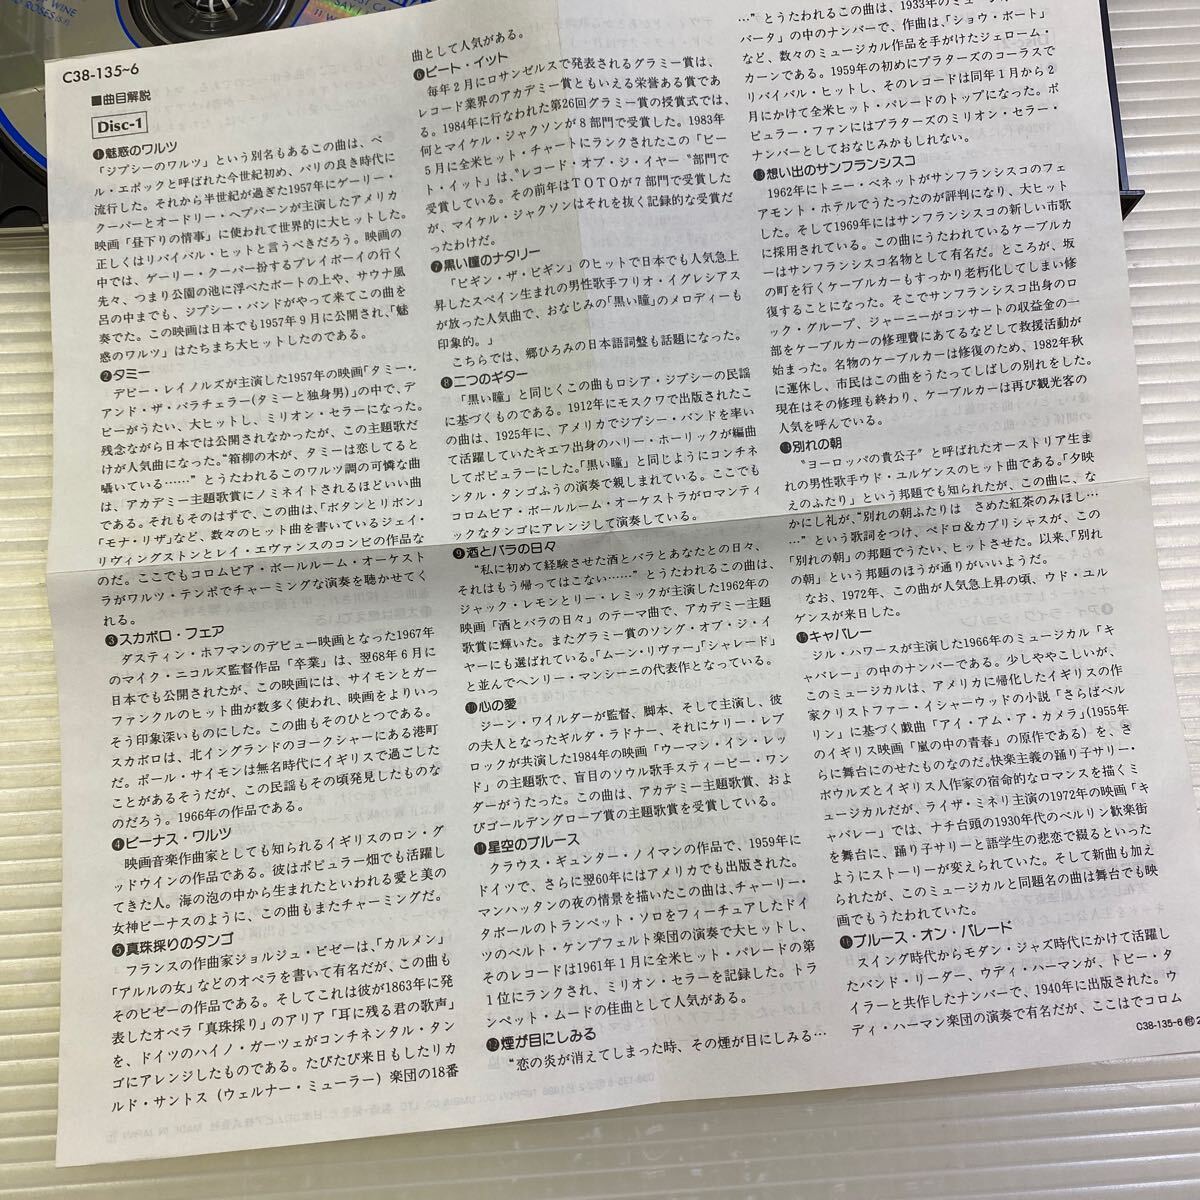 WINE
ROSES(S.F)
C38-135~6
■曲目解説
Disc-1
❶魅惑のワルツ
「ジプシーのワルツ」という別名もあるこの曲は、ベ
ル・エポックと呼ばれた今世紀初め、パリの良き時代に
流行した。それから半世紀が過ぎた1957年にゲーリー・
クーパーとオードリー・ヘプバーンが主演したアメリカ
映画「昼下りの情事」に使われて世界的に大ヒットした。
正しくはリバイバル・ヒットと言うべきだろう。映画の
中では、ゲーリー・クーパー扮するプレイボーイの行く
先々、つまり公園の池に浮べたボートの上や、サウナ風
呂の中までも、ジプシー・バンドがやって来てこの曲を
奏でた。この映画は日本でも1957年9月に公開され、「魅
惑のワルツ」はたちまち大ヒットしたのである。
❷タミー
デビー・レイノルズが主演した1957年の映画「タミー・
アンド・ザ・バラチェラー(タミーと独身男)」の中で、デ
ビーがうたい、大ヒットし、ミリオン・セラーになった。
残念ながら日本では公開されなかったが、この主題歌だ
けが人気曲になった。“箱柳の木が、タミーは恋してると
囁いている……”とうたわれるこのワルツ調の可憐な曲
は、アカデミー主題歌賞にノミネイトされるほどいい曲
である。それもそのはずで、この曲は、「ボタンとリボン」
「モナ・リザ」など、数々のヒット曲を書いているジェイ・
リヴィングストンとレイ・エヴァンスのコンビの作品な
のだ。ここでもコロムビア・ボールルーム・オーケスト
ラがワルツ・テンポでチャーミングな演奏を聴かせてく
れる。
❸スカボロ・フェア
ダスティン・ホフマンのデビュー映画となった1967年
のマイク・ニコルズ監督作品「卒業」は、翌68年6月に
日本でも公開されたが、この映画には、サイモンとガー
ファンクルのヒット曲が数多く使われ、映画をよりいっ
そう印象深いものにした。この曲もそのひとつである。
スカボロは、北イングランドのヨークシャーにある港町
だ。ポール・サイモンは無名時代にイギリスで過ごした
ことがあるそうだが、この民謡もその頃発見したものな
のだろう。1966年の作品である。
❹ビーナス・ワルツ
映画音楽作曲家としても知られるイギリスのロン・グ
ッドウインの作品である。彼はポピュラー畑でも活躍し
てきた人。海の泡の中から生まれたといわれる愛と美の
女神ビーナスのように、この曲もまたチャーミングだ。
❺真珠採りのタンゴ
フランスの作曲家ジョルジュ・ビゼーは、「カルメン」
「アルルの女」などのオペラを書いて有名だが、この曲も
そのビゼーの作品である。そしてこれは彼が1863年に発
表したオペラ「真珠採り」のアリア「耳に残る君の歌声」
を、ドイツのハイノ・ガーツェがコンチネンタル・タン
ゴにアレンジしたものである。たびたび来日もしたリカ
ルド・サントス(ウェルナー・ミューラー)楽団の18番
曲として人気がある。
❻ビート・イット
毎年2月にロサンゼルスで発表されるグラミー賞は、
レコード業界のアカデミー賞ともいえる栄誉ある賞であ
る。1984年に行なわれた第26回グラミー賞の授賞式では、
何とマイケル・ジャクソンが8部門で受賞した。1983年
5月に全米ヒット・チャートにランクされたこの「ビー
ト・イット」は、“レコード・オブ・ジ・イヤー”部門で
受賞している。その前年はTOTOが7部門で受賞した
が、マイケル・ジャクソンはそれを抜く記録的な受賞だ
ったわけだ。
❼黒い瞳のナタリー
「ビギン・ザ・ビギン」のヒットで日本でも人気急上
昇したスペイン生まれの男性歌手フリオ・イグレシアス
が放った人気曲で、おなじみの「黒い瞳」のメロディーも
印象的。」
こちらでは、郷ひろみの日本語詞盤も話題になった。
❽二つのギター
「黒い瞳」と同じくこの曲もロシア・ジプシーの民謡
に基づくものである。1912年にモスクワで出版されたこ
の曲は、1925年に、アメリカでジプシー・バンドを率い
て活躍していたキエフ出身のハリー・ホーリックが編曲
してポピュラーにした。「黒い瞳」と同じようにコンチネ
ンタル・タンゴふうの演奏で親しまれている。ここでも
コロムビア・ボールルーム・オーケストラがロマンティ
ックなタンゴにアレンジして演奏している。
❾酒とバラの日々
“私に初めて経験させた酒とバラとあなたとの日々、
それはもう帰ってはこない……”とうたわれるこの曲は、
ジャック・レモンとリー・レミックが主演した1962年の
映画「酒とバラの日々」のテーマ曲で、アカデミー主題
歌賞に輝いた。またグラミー賞のソング・オブ・ジ・イ
ヤーにも選ばれている。「ムーン・リヴァー」「シャレード」
と並んでヘンリー・マンシーニの代表作となっている。
❿心の愛
ジーン・ワイルダーが監督、脚本、そして主演し、彼
の夫人となったギルダ・ラドナー、それにケリー・レブ
ロックが共演した1984年の映画「ウーマン・イン・レッ
ド」の主題歌で、盲目のソウル歌手スティービー・ワン
ダーがうたった。この曲は、アカデミー主題歌賞、およ
びゴールデングローブ賞の主題歌賞を受賞している。
⓫星空のブルース
クラウス・ギュンター・ノイマンの作品で、1959年に
ドイツで、さらに翌60年にはアメリカでも出版された。
マンハッタンの夜の情景を描いたこの曲は、チャーリー・
タボールのトランペット・ソロをフィーチュアしたドイ
ツのベルト・ケンプフェルト楽団の演奏で大ヒットし、
そのレコードは1961年1月に全米ヒット・パレードの第
1位にランクされ、ミリオン・セラーを記録した。トラ
ンペット・ムードの佳曲として人気がある。
⓬煙が目にしみる
“恋の炎が消えてしまった時、その煙が目にしみる…
…”とうたわれるこの曲は、1933年のミュージカル「ロ
バータ」の中のナンバーで、作曲は、「ショウ・ボート」
など、数々のミュージカル作品を手がけたジェローム・
カーンである。1959年の初めにプラターズのコーラスで
リバイバル・ヒットし、そのレコードは同年1月から2
月にかけて全米ヒット・パレードのトップになった。ポ
ピュラー・ファンにはプラターズのミリオン・セラー・
ナンバーとしておなじみかもしれない。
⓭想い出のサンフランシスコ
1962年にトニー・ベネットがサンフランシスコのフェ
アモント・ホテルでうたったのが評判になり、大ヒット
した。そして1969年にはサンフランシスコの新しい市歌
に採用されている。この曲にうたわれているケーブルカ
ーはサンフランシスコ名物として有名だ。ところが、坂
の町を行くケーブルカーもすっかり老朽化してしまい修
復することになった。そこでサンフランシスコ出身のロ
ック・グループ、ジャーニーがコンサートの収益金の一
部をケーブルカーの修理費にあてるなどして救援活動が
始まった。名物のケーブルカーは修復のため、1982年秋
に運休し、市民はこの曲をうたってしばしの別れをした。
現在はその修理も終わり、ケーブルカーは再び観光客の
人気を呼んでいる。
⓮別れの朝
“ヨーロッパの貴公子”と呼ばれたオーストリア生ま
れの男性歌手ウド・ユルゲンスのヒット曲である。「夕映
えのふたり」という邦題でも知られたが、この曲に、な
かにし礼が、“別れの朝ふたりは　さめた紅茶のみほし…
…”という歌詞をつけ、ペドロ&カプリシャスが、この
「別れの朝」の邦題でうたい、ヒットさせた。以来、「別れ
の朝」という邦題のほうが通りがいいようだ。
なお、1972年、この曲が人気急上昇の頃、ウド・ユル
ゲンスが来日した。
⓯キャバレー
ジル・ハワースが主演した1966年のミュージカル「キ
ャバレー」の中のナンバーである。少しややこしいが、
このミュージカルは、アメリカに帰化したイギリスの作
家クリストファー・イシャーウッドの小説「さらばベル
リン」に基づく戯曲「アイ・アム・ア・カメラ」(1955年
のイギリス映画「嵐の中の青春」の原作である)を、さ
らに舞台にのせたものなのだ。快楽主義の踊り子サリー・
ボウルズとイギリス人作家の宿命的なロマンスを描くミ
ュージカルだが、ライザ・ミネリ主演の1972年の映画「キ
ャバレー」では、ナチ台頭の1930年代のベルリン歓楽街
を舞台に、踊り子サリーと語学生の悲恋で綴るといった
ようにストーリーが変えられていた。そして新曲も加え
られたが、このミュージカルと同題名の曲は舞台でも映
画でもうたわれていた。
⓰ブルース・オン・パレード
スイング時代からモダン・ジャズ時代にかけて活躍し
たバンド・リーダー、ウディ・ハーマンが、トビー・タ
イラーと共作したナンバーで、1940年に出版された。ウ
ディ・ハーマン楽団の演奏で有名だが、ここではコロム
C38-135-6